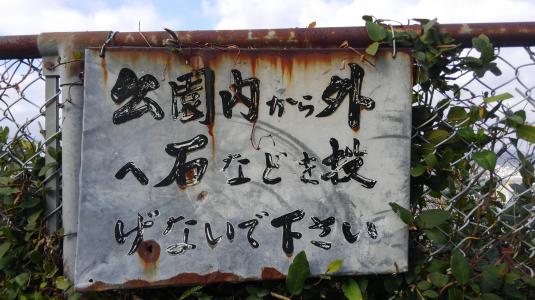 公園内から外
へ石などを投
げないで下さい